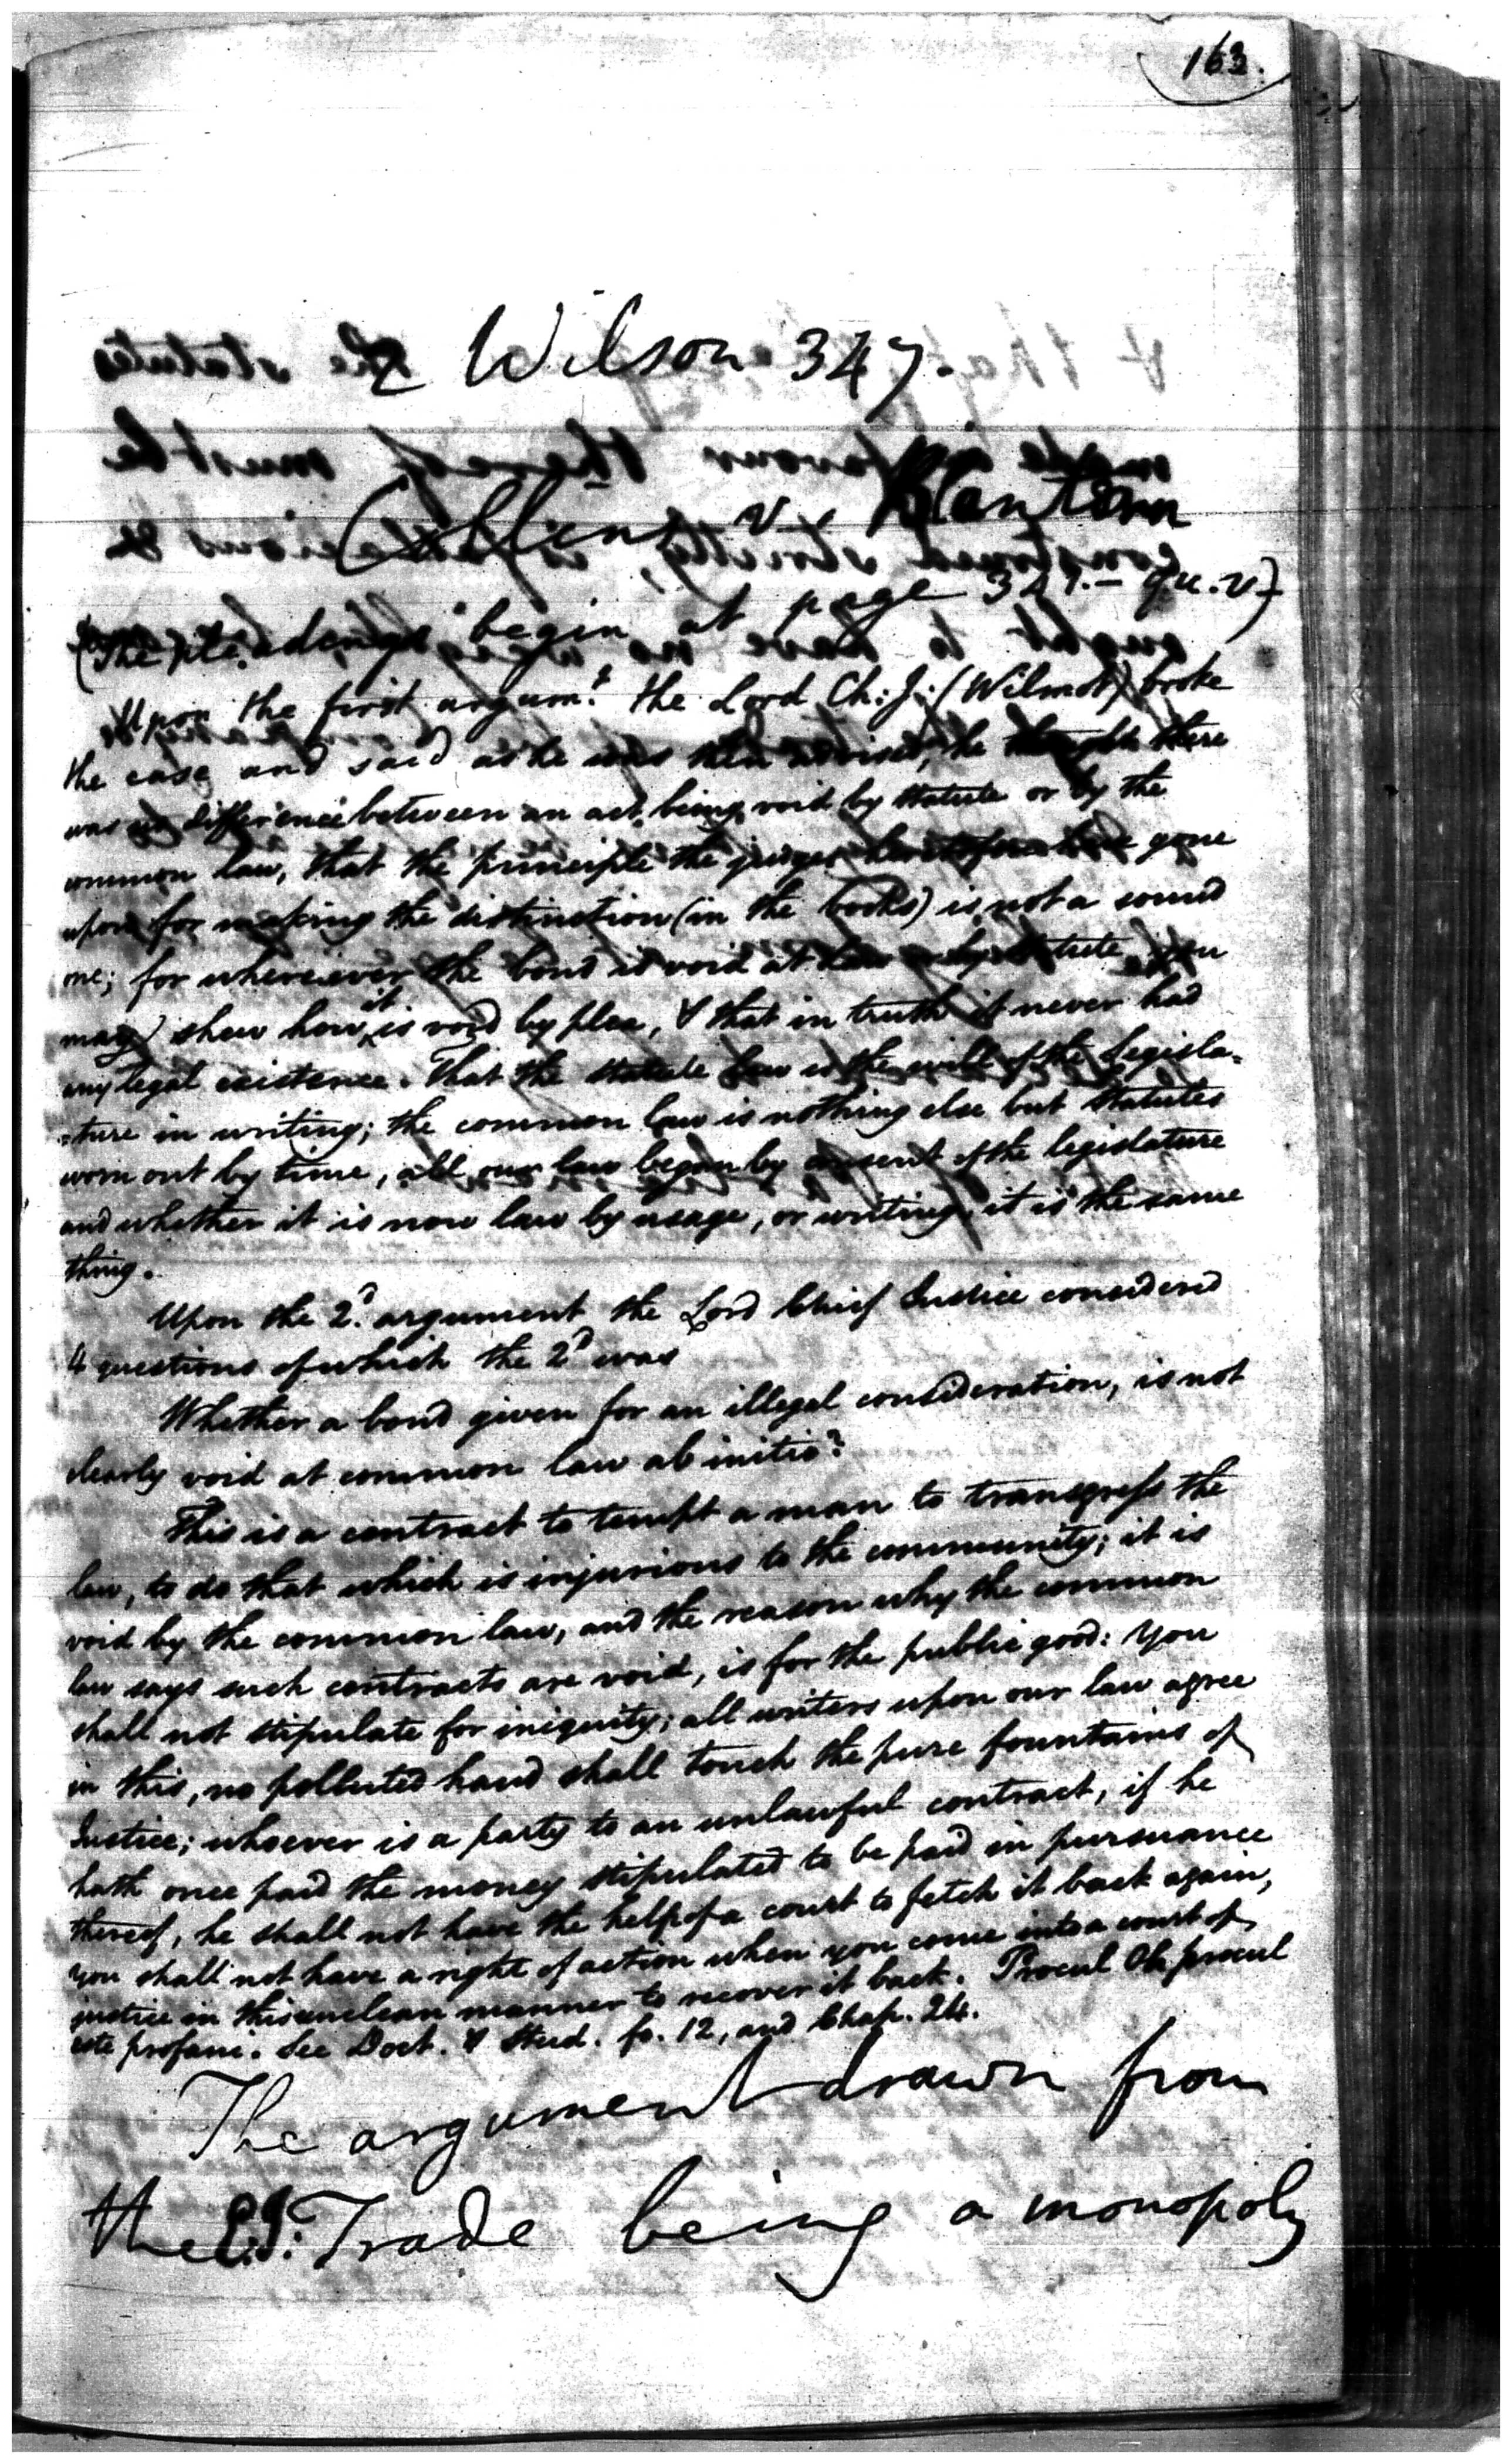 163.
2 Wilson 347.
Collins v. Blantern
(The pleadings begin at page 347. — q.u.v)
Upon the first argum.t the Lord Ch: J: (Wilmot) broke
the case and said as he was then advised, he thought there
was no difference between an act being void by statute or by the
common law, that the principle the judges heretofore have gone
upon for making the distinction (in the books) is not a sound
one; for whereever the bond is void at law or by statute you
may shew how it is void by plea, & that in truth it never had
any legal existence. That the statute law is the will of the Legisla-
-ture in writing; the common law is nothing else but statutes
worn out by time, all our law began by consent of the legislature
and whether it is now law by usage, or writing, it is the same
thing.
Upon the 2.d argument the Lord Chief Justice considered
4 questions of which the 2d was
Whether a bond given for an illegal consideration, is not
clearly void at common law ab initio?
This is a contract to tempt a man to transgress the
law, to do that which is injurious to the community; it is
void by the common law, and the reason why the common
law says such contracts are void, is for the public good: You
shall not stipulate for iniquity; all writers upon our law agree
in this, no polluted hand shall touch the pure fountains of
Justice; whoever is a party to an unlawful contract, if he
hath once paid the money stipulated to be paid in pursuance
thereof, he shall not have the help of a court to fetch it back again,
you shall not have a right of action when you come into a court of
justice in this unclean manner to recover it back. Procul Oh procul
este profani. See Doct. & Stud. fo. 12, and Chap. 24.
The argument drawn from
the E.I: Trade being a monopoly